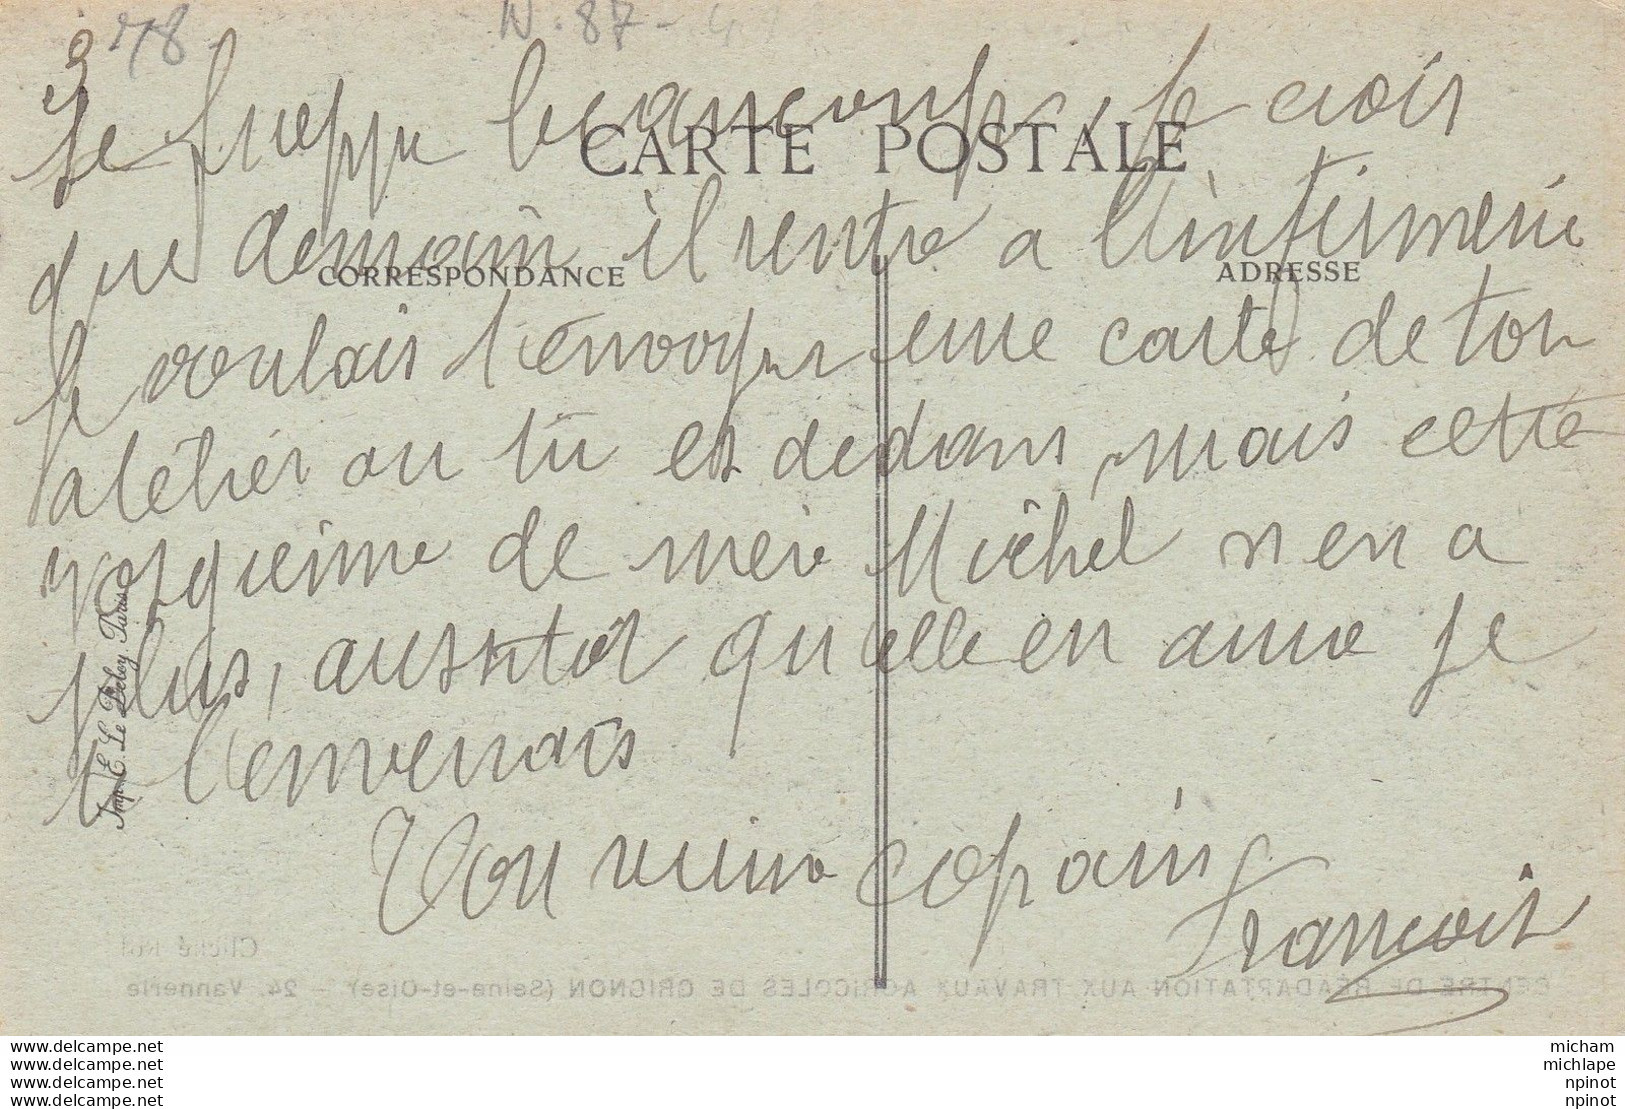 78 N. 87-4
CARTE POSTALE
beaucoup, je crois
que demain il rentre a l'infirmerie
CORRESPONDANCE
ADRESSE
Je voulais t'envoyer une carte de ton
atelier ou tu es dedans, mais cette
de mère Michel n en a
plus, aussitot qu elle en aura je
t
Ton vieux copain
François
Imp. E. Le Deley, Paris
Cliché
CENTRE DE RÉADAPTATION AUX TRAVAUX AGRICOLES DE GRIGNON (Seine-et-Oise) - 24. Vannerie
www.delcampe.net
www.delcampe.net
www.delcampe.net
www.delcampe.net
micham
michlape
npinot
npinot